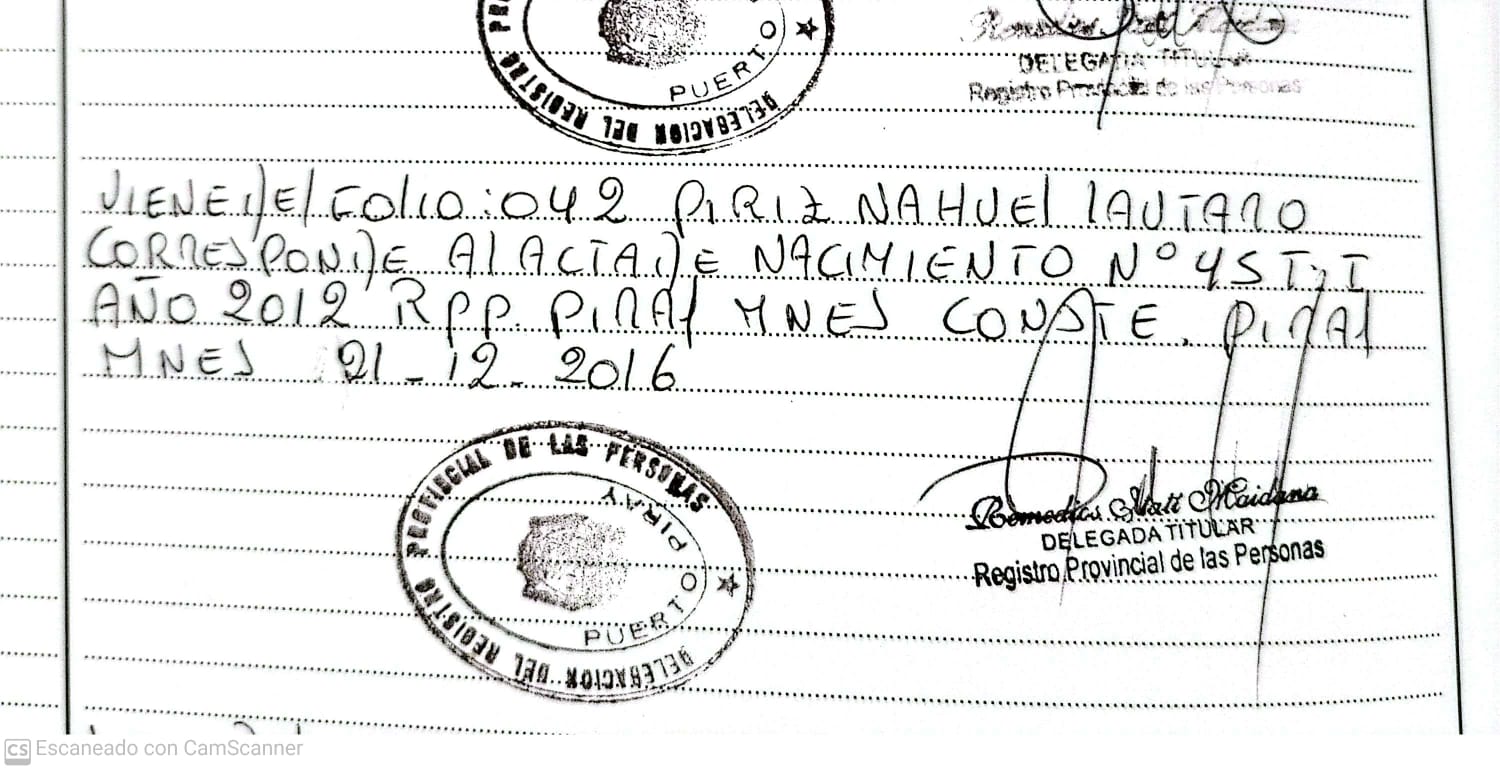 PUERTO
DELEGACION DEL REGISTRO
DELEGADA TITULAR
Registro Provincial de las Personas
VIENE DEL FOLIO: 042 PIRIZ NAHUEL LAUTARO
CORRESPONDE AL ACTA DE NACIMIENTO Nº 45 T: I
AÑO 2012 RPP. PIRAY MNES CONSTE. PIRAY
MNES 21-12-2016
DELEGACION DEL REGISTRO PROVINCIAL DE LAS PERSONAS
PUERTO PIRAY
Remedios Itatí Maidana
DELEGADA TITULAR
Registro Provincial de las Personas
CS Escaneado con CamScanner